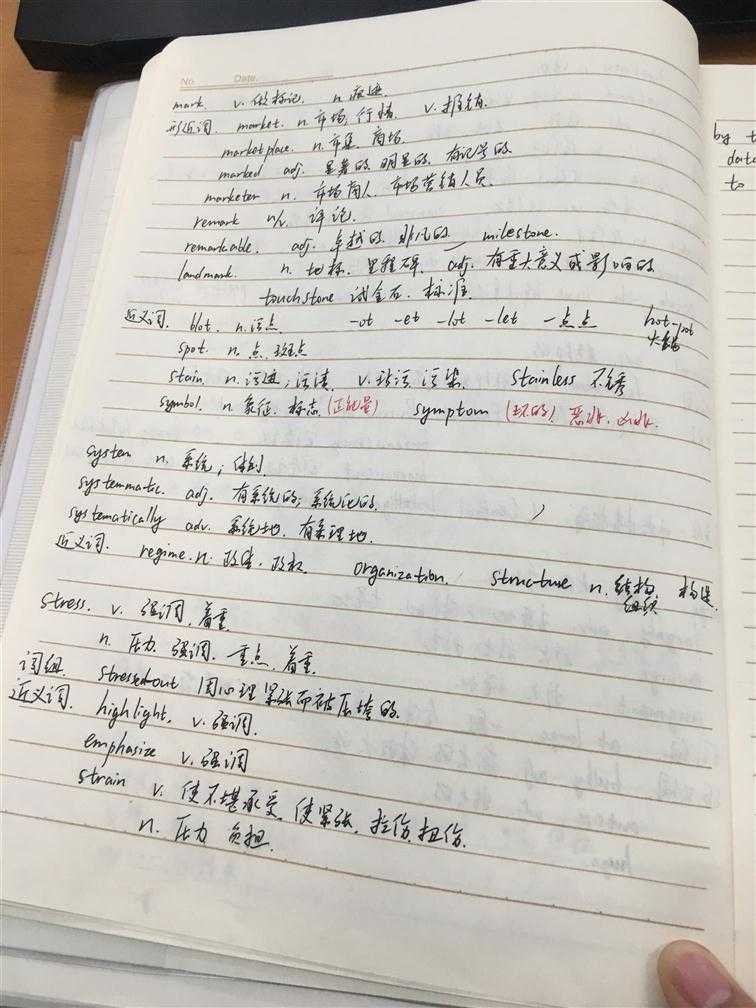 No. Date.
mark v. 做标记. n. 痕迹
形近词. market. n. 市场, 行情. v. 推销.
marketplace. n. 市集. 商场.
marked adj. 显著的. 明显的. 有记号的.
marketer n. 市场商人. 市场营销人员.
remark n/v. 评论.
remarkable. adj. 卓越的. 非凡的 milestone.
landmark. n. 地标. 里程碑. adj. 有重大意义或影响的
touchstone 试金石. 标准.
近义词. blot. n. 污点. -ot -et -lot -let 一点点 hot-pot
火锅
spot. n. 点. 斑点
stain n. 污迹; 污渍. v. 玷污. 污染. stainless 不锈
symbol. n. 象征. 标志 (正能量) symptom
system n. 系统; 体制.
systemmatic. adj. 有系统的; 系统化的.
systematically adv. 系统地. 有条理地.
近义词. regime. n. 政体. 政权 organization. structure n. 结构. 构造.
组织
stress. v. 强调, 着重
n. 压力. 强调. 重点. 着重.
词组. stressed out 因心理紧张而被压垮的.
近义词. highlight. v. 强调.
emphasize v. 强调
strain v. 使不堪承受. 使紧张. 拉伤. 扭伤.
n. 压力 负担.
by t
data
to